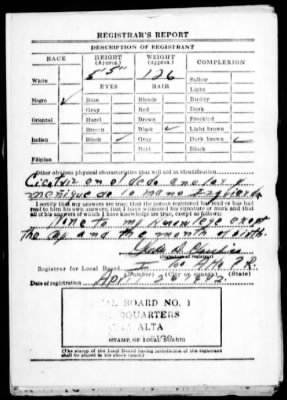 REGISTRAR'S REPORT
DESCRIPTION OF REGISTRANT
RACE HEIGHT (Approx.) WEIGHT (Approx.) COMPLEXION
5' 5" 126
White Sallow
EYES HAIR Light
Negro ✓ Blue Blonde Ruddy
Gray Red Dark
Oriental Hazel Brown Freckled
Brown Black ✓ Light brown
Indian Black ✓ Gray Dark brown ✓
Bald Black
Filipino
Other obvious physical characteristics that will aid in identification
Cicatriz en el dedo anular y
meñique de la mano izquierda
I certify that my answers are true; that the person registered has read or has had
read to him his own answers; that I have witnessed his signature or mark and that
all of his answers of which I have knowledge are true, except as follows:
None to my knowledge except
the day and the month of birth
(Signature of registrar)
Registrar for Local Board 1 P.R.
(Number) (City or county) (State)
Date of registration April
LOCAL BOARD NO. 1
HEADQUARTERS
ALTA
(STAMP OF LOCAL BOARD)
(The stamp of the Local Board having jurisdiction of the registrant
shall be placed in the above space.)